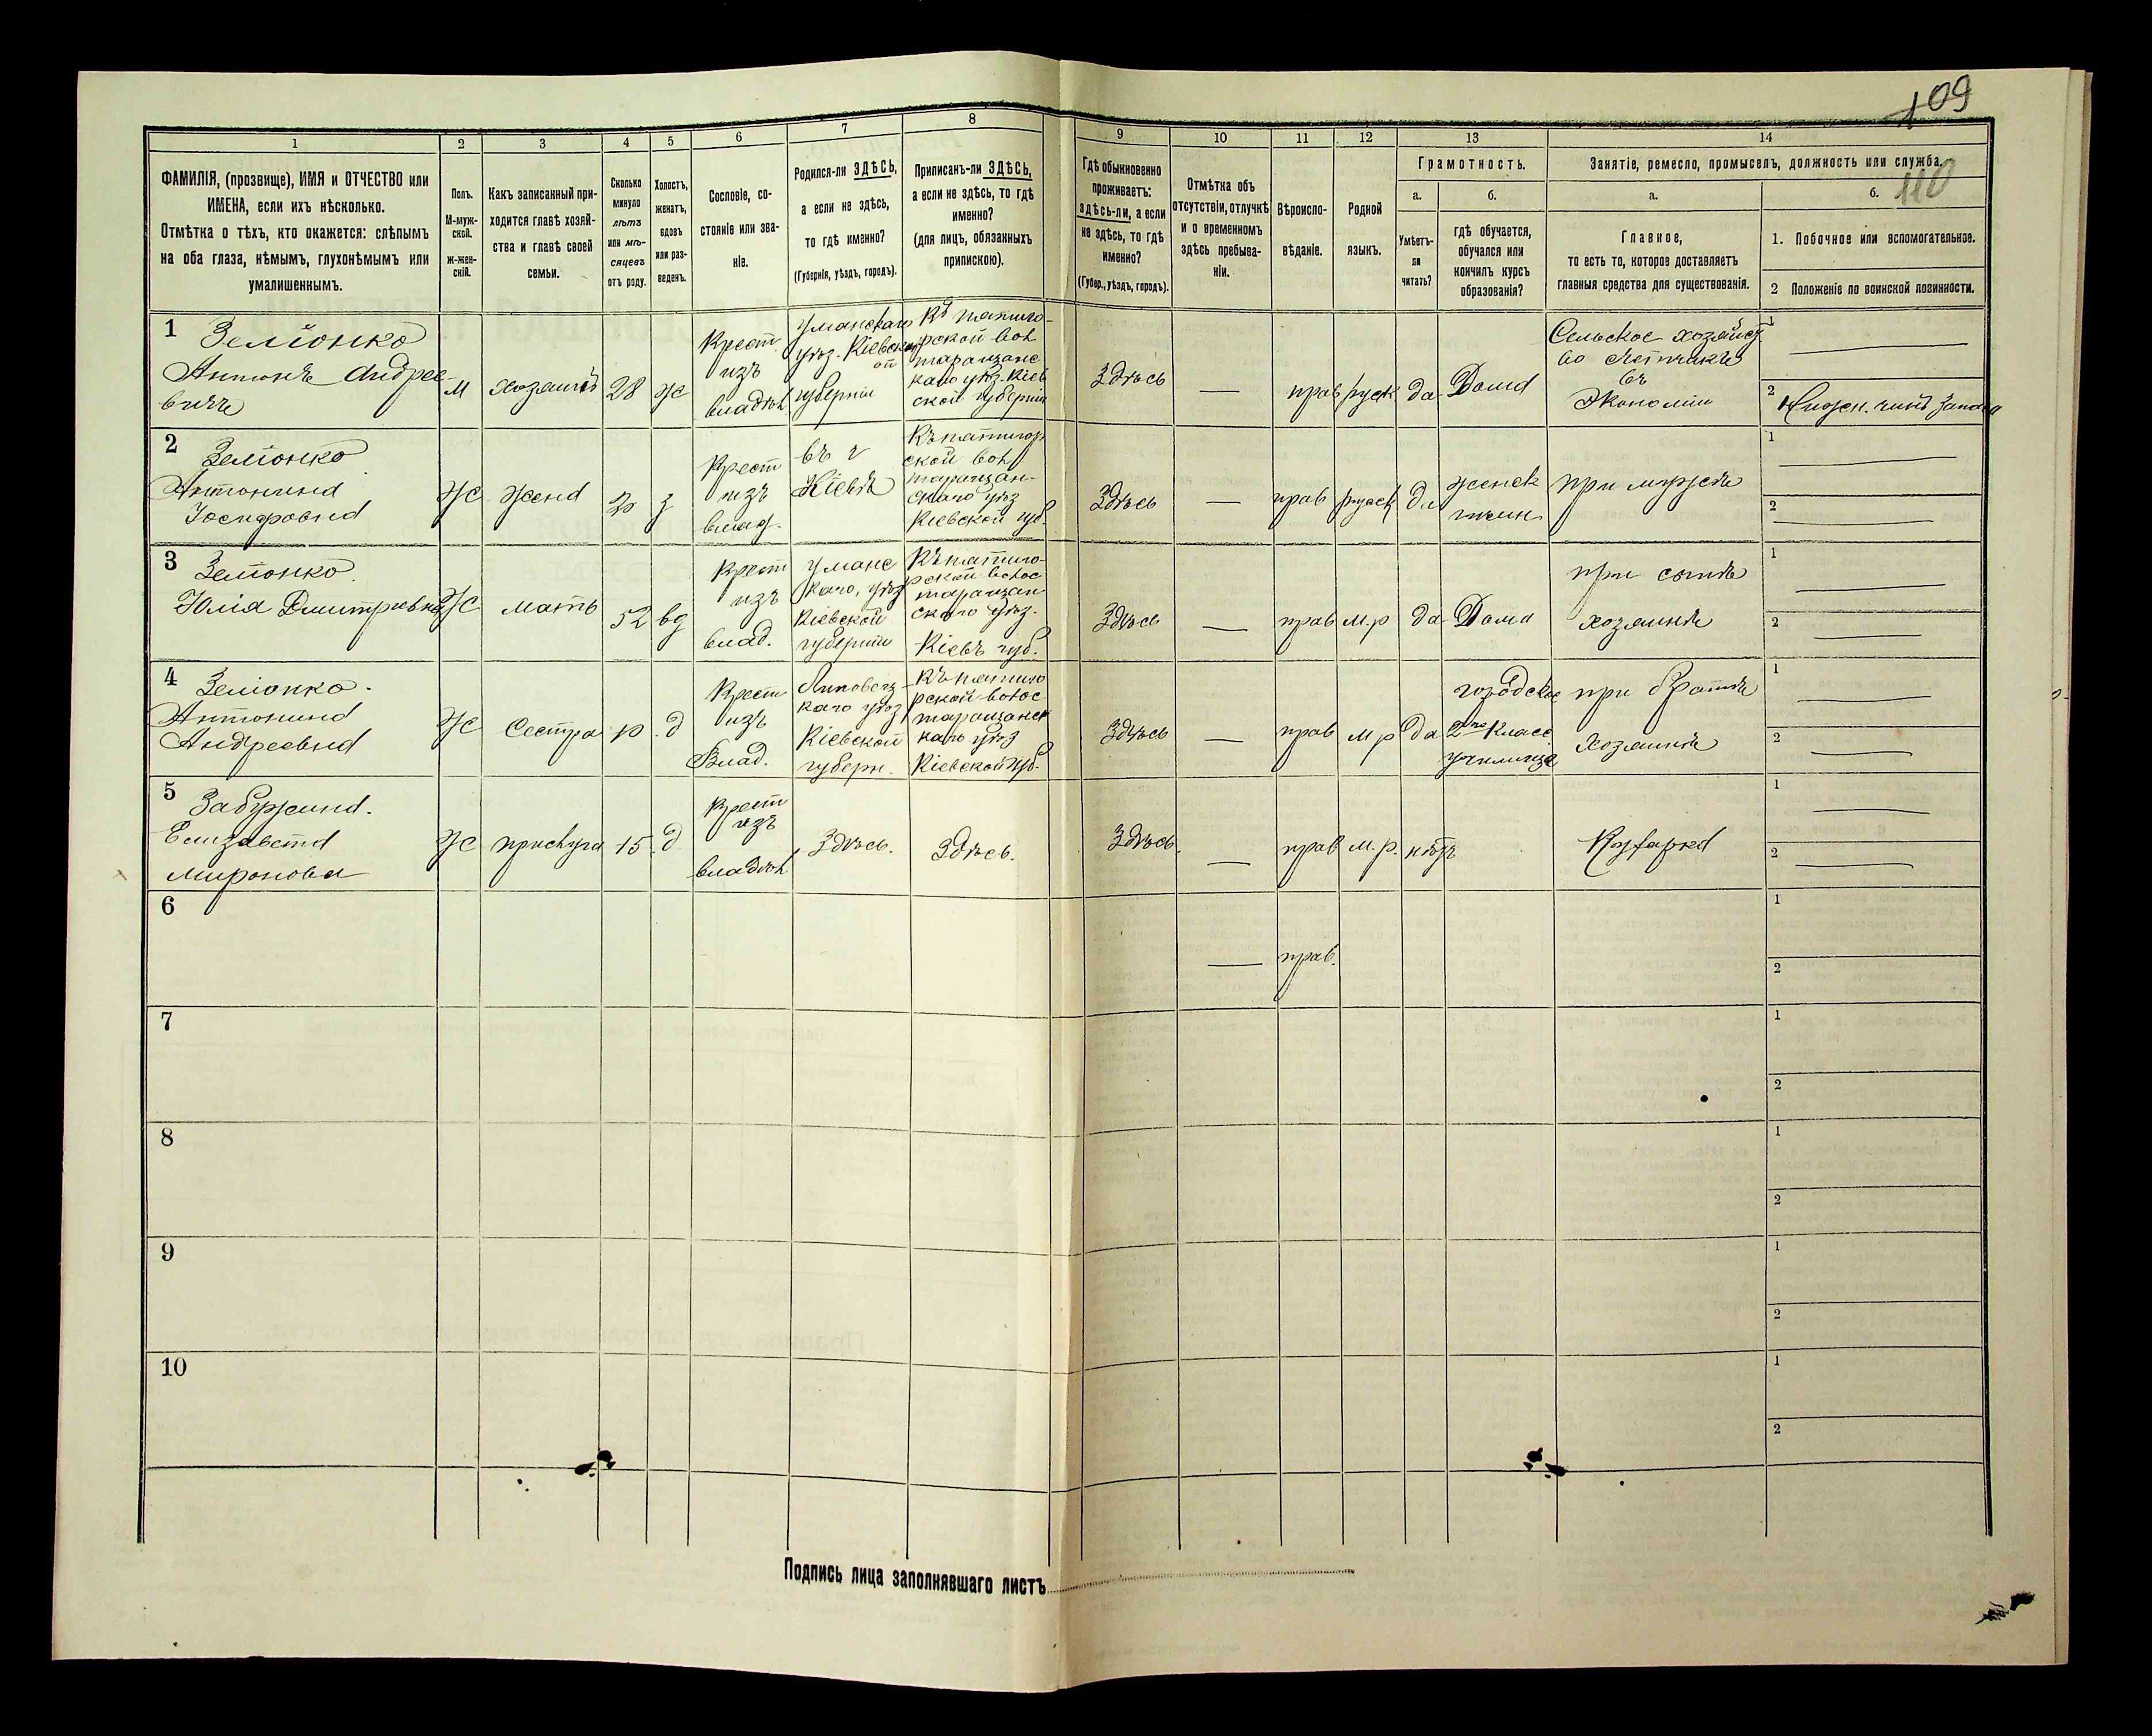 109
110
1
2
3
4
5
6
7
8
9
10
11
12
13
14
ФАМИЛІЯ, (прозвище), ИМЯ и ОТЧЕСТВО или
ИМЕНА, если ихъ нѣсколько.
Отмѣтка о тѣхъ, кто окажется: слѣпымъ
на оба глаза, нѣмымъ, глухонѣмымъ или
умалишеннымъ.
Полъ.
М-муж-
ской.
ж-жен-
скій.
Какъ записанный при-
ходится главѣ хозяй-
ства и главѣ своей
семьи.
Сколько
минуло
лѣтъ
или мѣ-
сяцевъ
отъ роду.
Холостъ,
женатъ,
вдовъ
или раз-
веденъ.
Сословіе, со-
стояніе или зва-
ніе.
Родился-ли ЗДѢСЬ,
а если не здѣсь,
то гдѣ именно?
(Губернія, уѣздъ, городъ).
Приписанъ-ли ЗДѢСЬ,
а если не здѣсь, то гдѣ
именно?
(для лицъ, обязанныхъ
припискою).
Гдѣ обыкновенно
проживаетъ:
здѣсь-ли, а если
не здѣсь, то гдѣ
именно?
(Губер., уѣздъ, городъ).
Отмѣтка объ
отсутствіи, отлучкѣ
и о временномъ
здѣсь пребыва-
ніи.
Вѣроиспо-
вѣданіе.
Родной
языкъ.
Грамотность.
а.
б.
Умѣетъ-
ли
читать?
гдѣ обучается,
обучался или
кончилъ курсъ
образованія?
Занятіе, ремесло, промыселъ, должность или служба.
а.
б.
Главное,
то есть то, которое доставляетъ
главныя средства для существованія.
1. Побочное или вспомогательное.
2 Положеніе по воинской повинности.
1
Земіонко
Антонъ Андрее-
вичъ
М
хозяинъ
28
ж
Крест
изъ
владѣл
Уманскаго
уѣз. Кіевск
ой
губерніи
Къ пятиго-
рской вол
таращанс
каго уѣз. Кіев
ской губерніи
Здѣсь
—
прав
руск
да
Дома
Сельское хозяйст
во
въ
Экономіи
1
2
Нижн. чинъ запаса
2
Земіонко
Антонина
Іосифовна
Ж
жена
з
Крест
изъ
влад.
въ г
Кіевѣ
Къ пятигор
ской вол
таращан-
скаго уѣз
Кіевской губ.
Здѣсь
—
прав
руск
да
женск
гимн
при мужѣ
1
2
3
Земіонко
Юлія Дмитріевна
Ж
мать
52
вд
Крест
изъ
влад.
Уманс
каго, уѣз
Кіевской
губерніи
Къ пятиго-
рской волос
таращан
скаго уѣз.
Кіевъ губ.
Здѣсь
—
прав
м.р
да
Дома
при сынѣ
хозяинѣ
1
2
4
Земіонко.
Антонина
Андреевна
Ж
Сестра
д
Крест
изъ
Влад.
Липовец-
каго уѣз
Кіевской
губерн.
Къ пятиго
рской волос
таращанск
каго уѣз
Кіевской губ.
Здѣсь
—
прав
м р
да
городское
2хъ класс
училище
при братѣ
хозяинѣ
1
2
5
Забужина.
Елизавета
Миронова
Ж
прислуга
15
д
Крест
изъ
владѣл
Здѣсь.
Здѣсь.
Здѣсь.
—
прав
м. р.
нѣтъ
Кухарка
1
2
6
—
прав.
1
2
7
1
2
8
1
2
9
1
2
10
1
2
Подпись лица заполнявшаго листъ